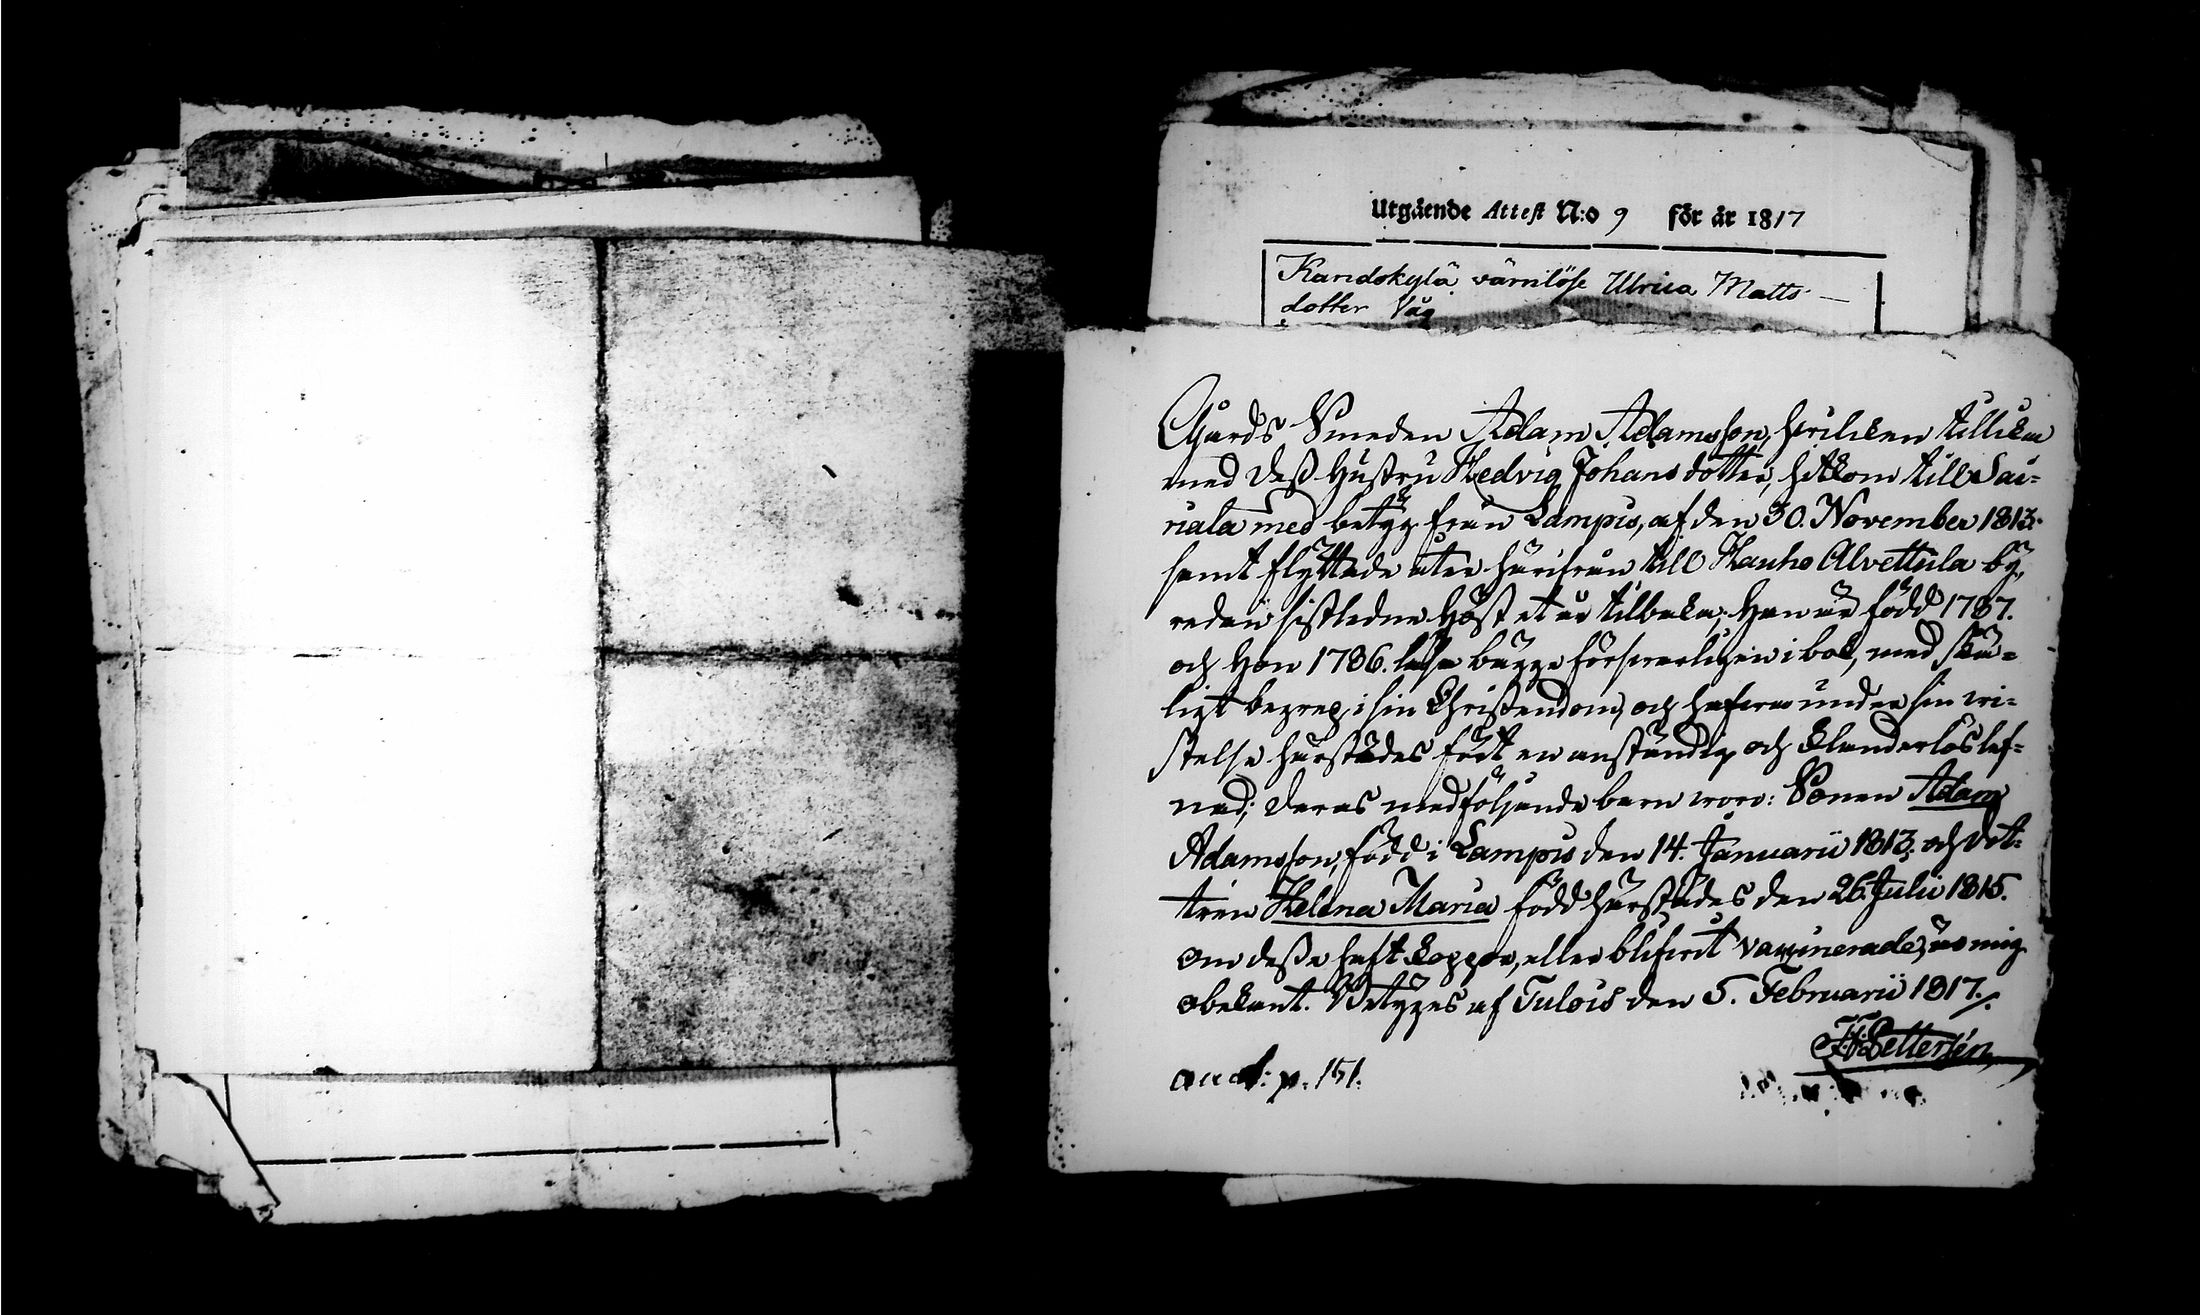 Utgående Attest N:o 9 för år 1817
Kandokylä värnlöse Ulrica Matts-
dotter Våg
Gårds Smeden Adam Adamsson, hvilcken tillika
med dess Hustru Hedvig Johansdotter, hitkom till Sai-
riala med betyg från Lampis, af den 30. November 1813.
samt flyttade åter härifrån till Hauho Alvettula by,
redan sistledne Höst et år tilbaka; Han är född 1787.
och Hon 1786. läsa bägge försvarligen i bok, med skä-
ligt begrep i sin Christendom, och hafva under sin vi-
stelse härstädes fört en anständig och klanderlös lef-
nad; deras medföljande barn voro: Sonen Adam
Adamsson, född i Lampis den 14. Januarii 1813. och Dot-
tren Helena Maria född härstädes den 26. Julii 1815.
Om desse haft koppor, eller blifvit vaccinerade, är mig
obekant. Betyges af Tulois den 5. Februarii 1817./.
Pettersén
p. 151.